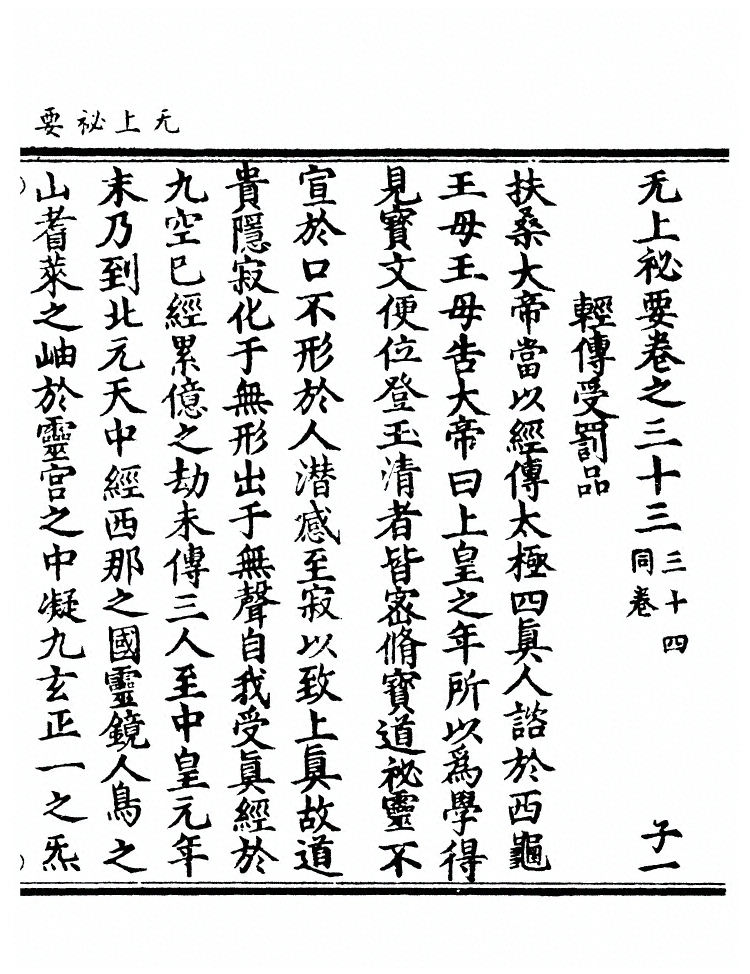 无上祕要
无上祕要卷之三十三 三十四同卷 子一
輕傳受罰品
扶桑大帝當以經傳太極四眞人諮於西龜
王母王母告大帝曰上皇之年所以爲學得
見寶文便位登玉清者皆宻脩寶道祕靈不
宣於口不形於人潜感至寂以致上眞故道
貴隱寂化于無形出于無聲自我受眞經於
九空已經累億之劫未傳三人至中皇元年
末乃到北元天中經西那之國靈鏡人鳥之
山耆萊之岫於靈宫之中凝九玄正一之炁